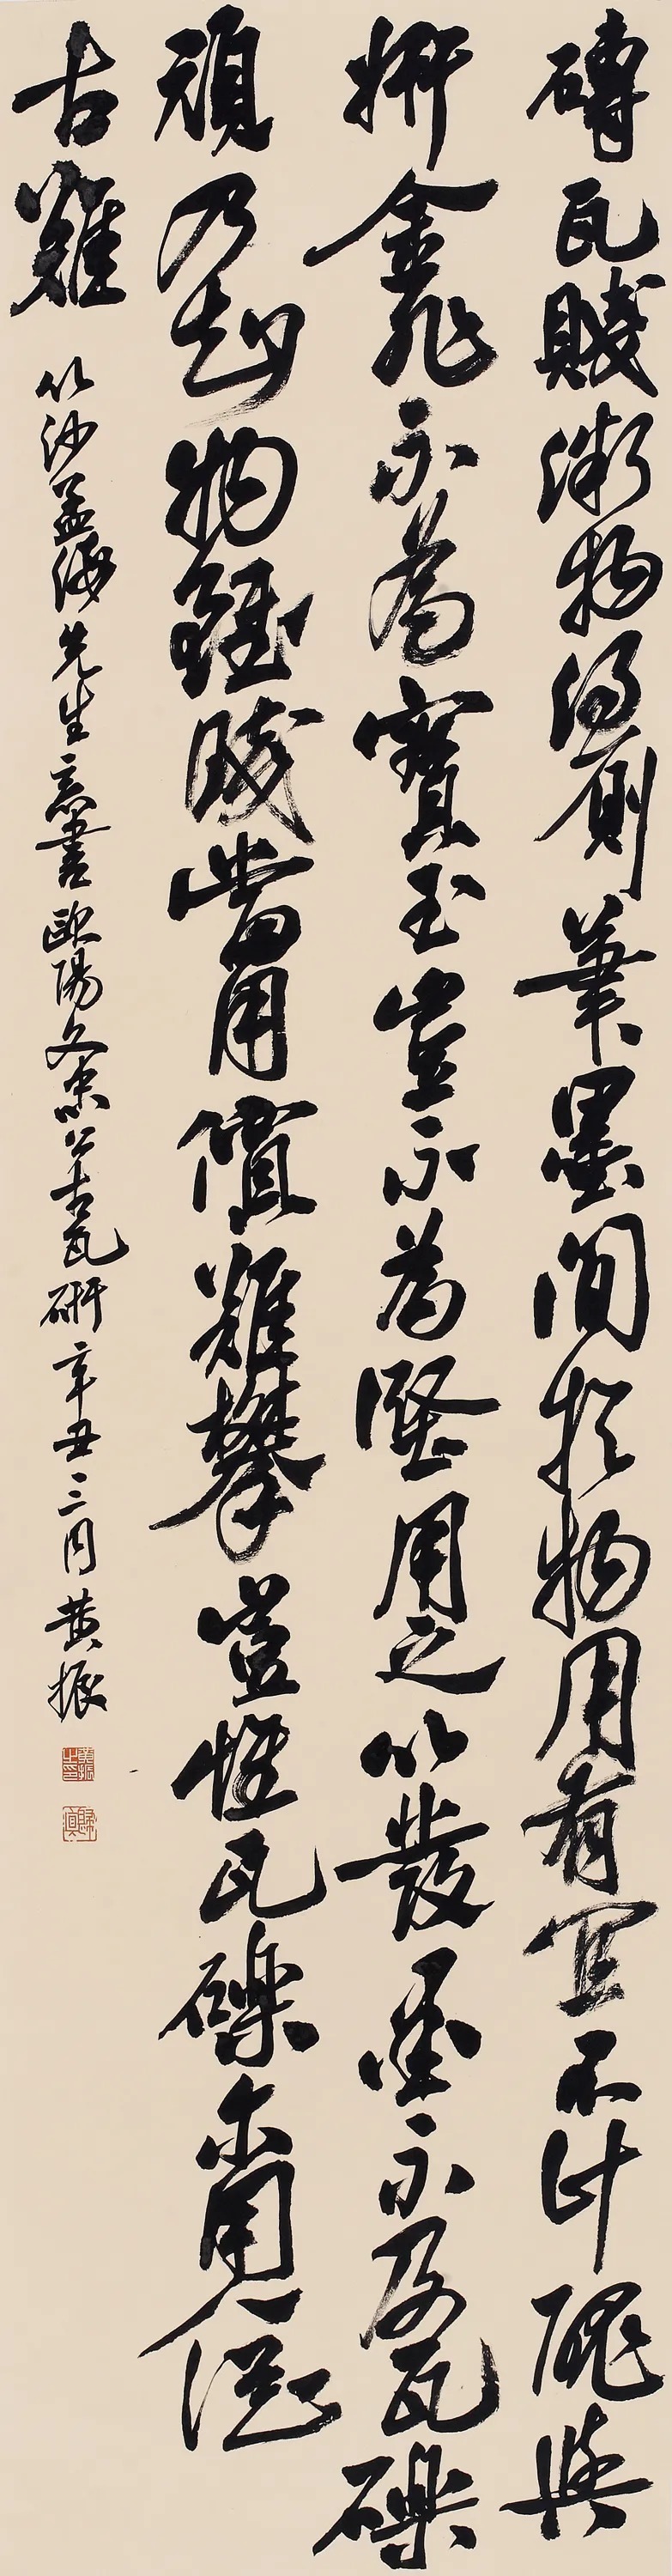 磚瓦賤微物得廁筆墨間於物用有宜不計醜與
妍金非不為寶玉豈不為堅用之以發墨不及瓦礫
頑乃知物雖賤當用價難攀豈惟瓦礫尔用人從
古難
以沙孟海先生意書歐陽文忠公古瓦研辛丑三月黃振
黃振之印